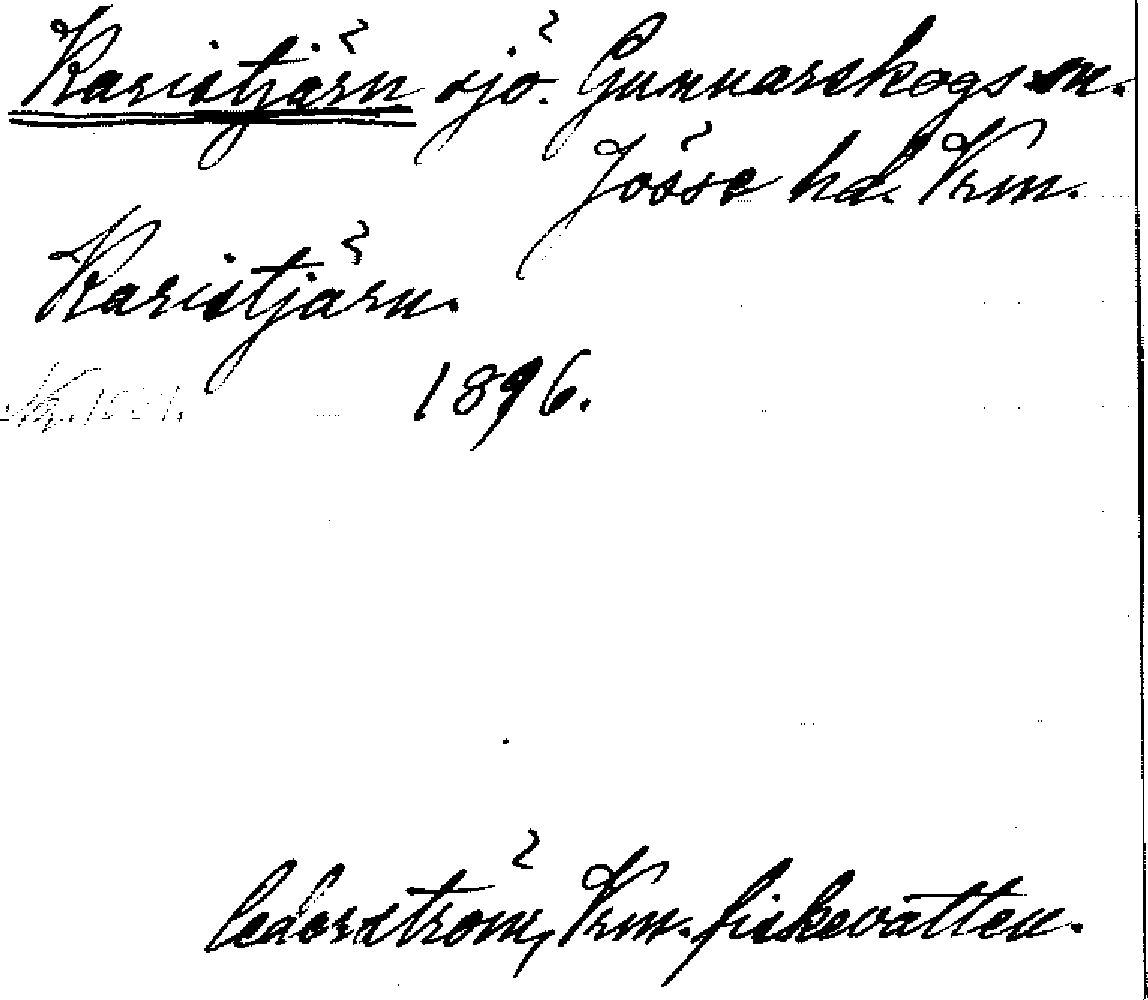 Karistjärn sjö. Gunnarskogs sn.
Jösse hd. Vrm.
Karistjärn.
1896.
Cederström, Vrm. fiskevatten.